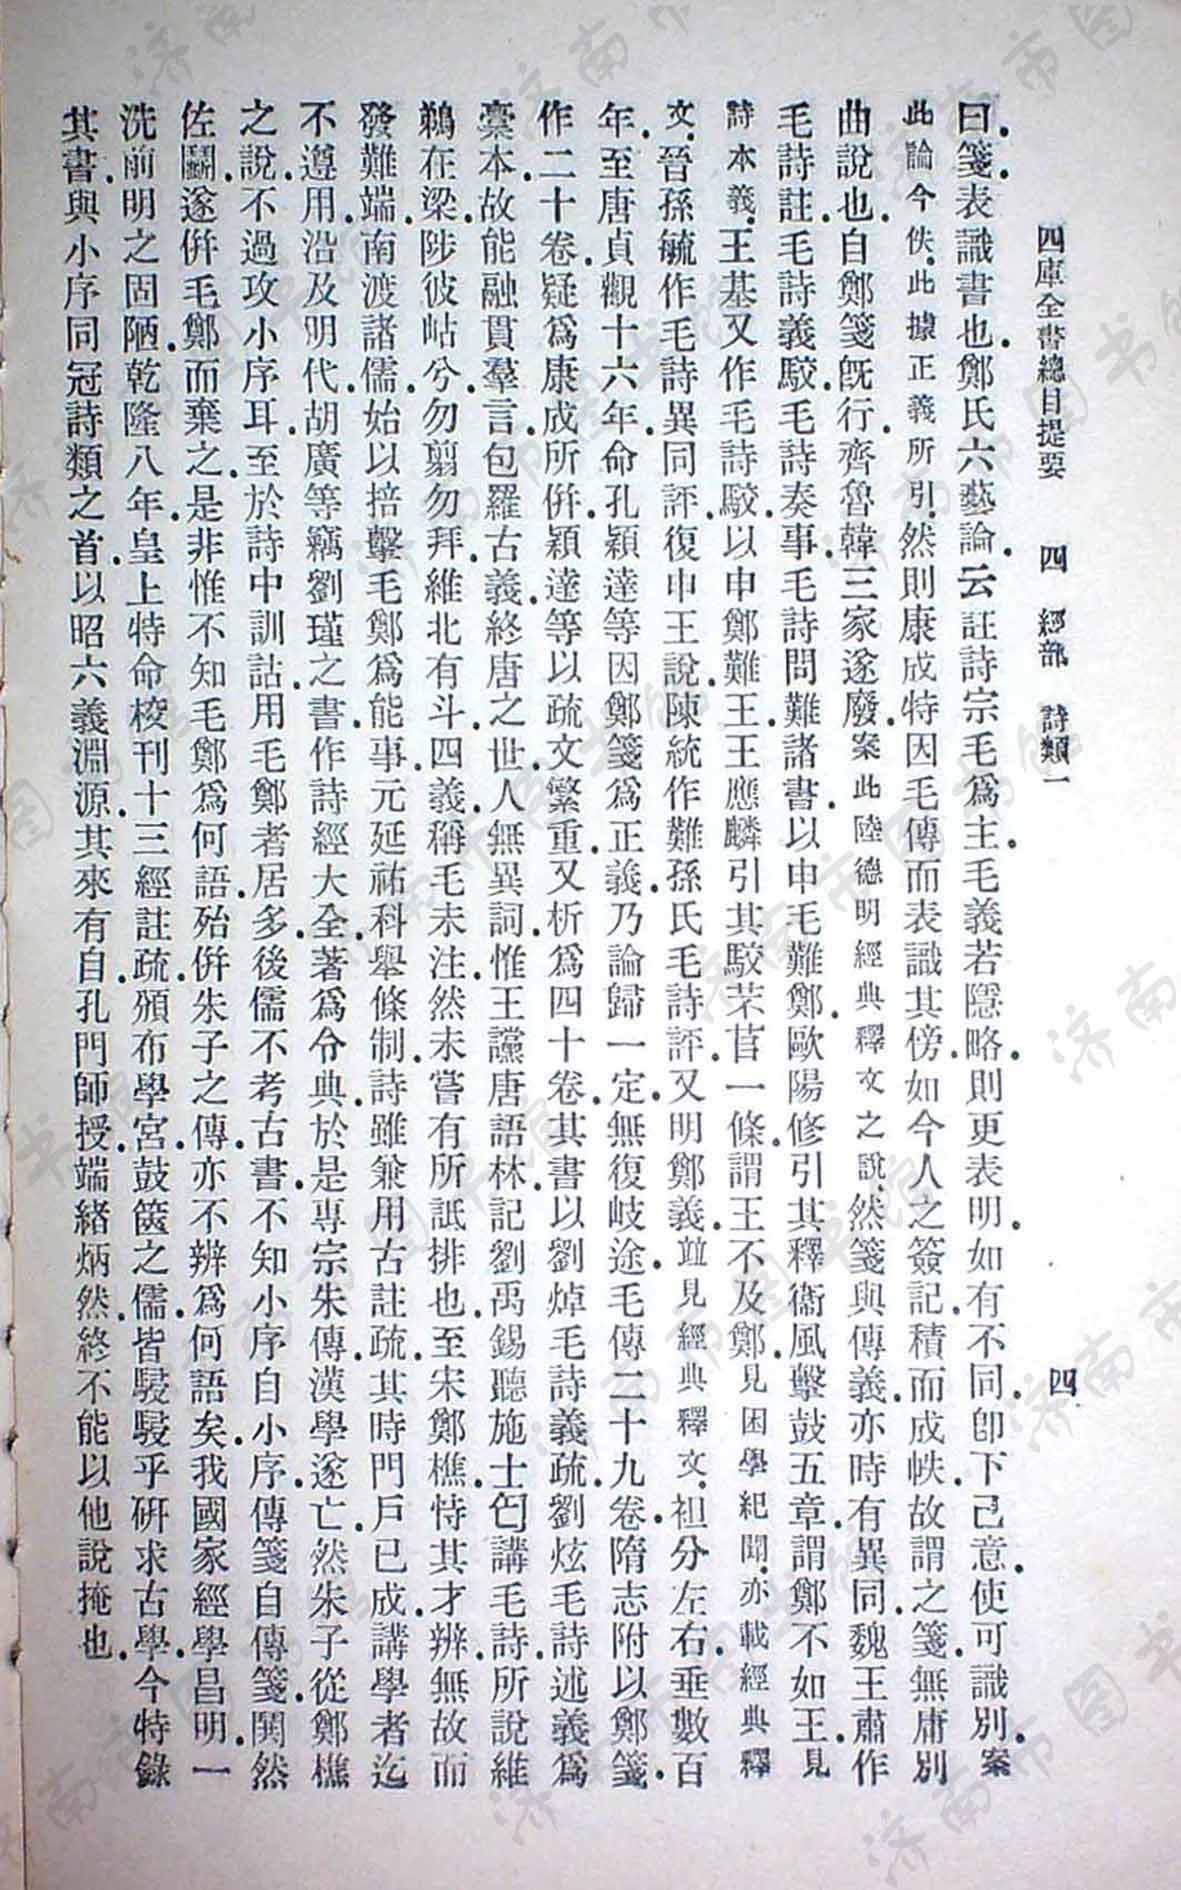 四庫全書總目提要　四　經部　詩類一　四
曰箋表識書也鄭氏六藝論云註詩宗毛為主毛義若隱略則更表明如有不同即下己意使可識別案
此論今佚此據正義所引然則康成特因毛傳而表識其傍如今人之簽記積而成帙故謂之箋無庸別
曲說也自鄭箋既行齊魯韓三家遂廢案此陸德明經典釋文之說然箋與傳義亦時有異同魏王肅作
毛詩註毛詩義駮毛詩奏事毛詩問難諸書以申毛難鄭歐陽修引其釋衞風擊鼓五章謂鄭不如王見
詩本義王基又作毛詩駮以申鄭難王王應麟引其駮芣苢一條謂王不及鄭見困學紀聞亦載經典釋
文晉孫毓作毛詩異同評復申王說陳統作難孫氏毛詩評又明鄭義竝見經典釋文袒分左右垂數百
年至唐貞觀十六年命孔穎達等因鄭箋為正義乃論歸一定無復岐途毛傳二十九卷隋志附以鄭箋
作二十卷疑為康成所併穎達等以疏文繁重又析為四十卷其書以劉焯毛詩義疏劉炫毛詩述義為
稾本故能融貫羣言包羅古義終唐之世人無異詞惟王讜唐語林記劉禹錫聽施士匄講毛詩所說維
鵜在梁陟彼岵兮勿翦勿拜維北有斗四義稱毛未注然未嘗有所詆排也至宋鄭樵恃其才辨無故而
發難端南渡諸儒始以掊擊毛鄭為能事元延祐科舉條制詩雖兼用古註疏其時門戶已成講學者迄
不遵用沿及明代胡廣等竊劉瑾之書作詩經大全著為令典於是專宗朱傳漢學遂亡然朱子從鄭樵
之說不過攻小序耳至於詩中訓詁用毛鄭者居多後儒不考古書不知小序自小序傳箋自傳箋鬨然
佐鬭遂併毛鄭而棄之是非惟不知毛鄭為何語殆併朱子之傳亦不辨為何語矣我國家經學昌明一
洗前明之固陋乾隆八年皇上特命校刊十三經註疏頒布學宮鼓篋之儒皆駸駸乎研求古學今特錄
其書與小序同冠詩類之首以昭六義淵源其來有自孔門師授端緒炳然終不能以他說掩也